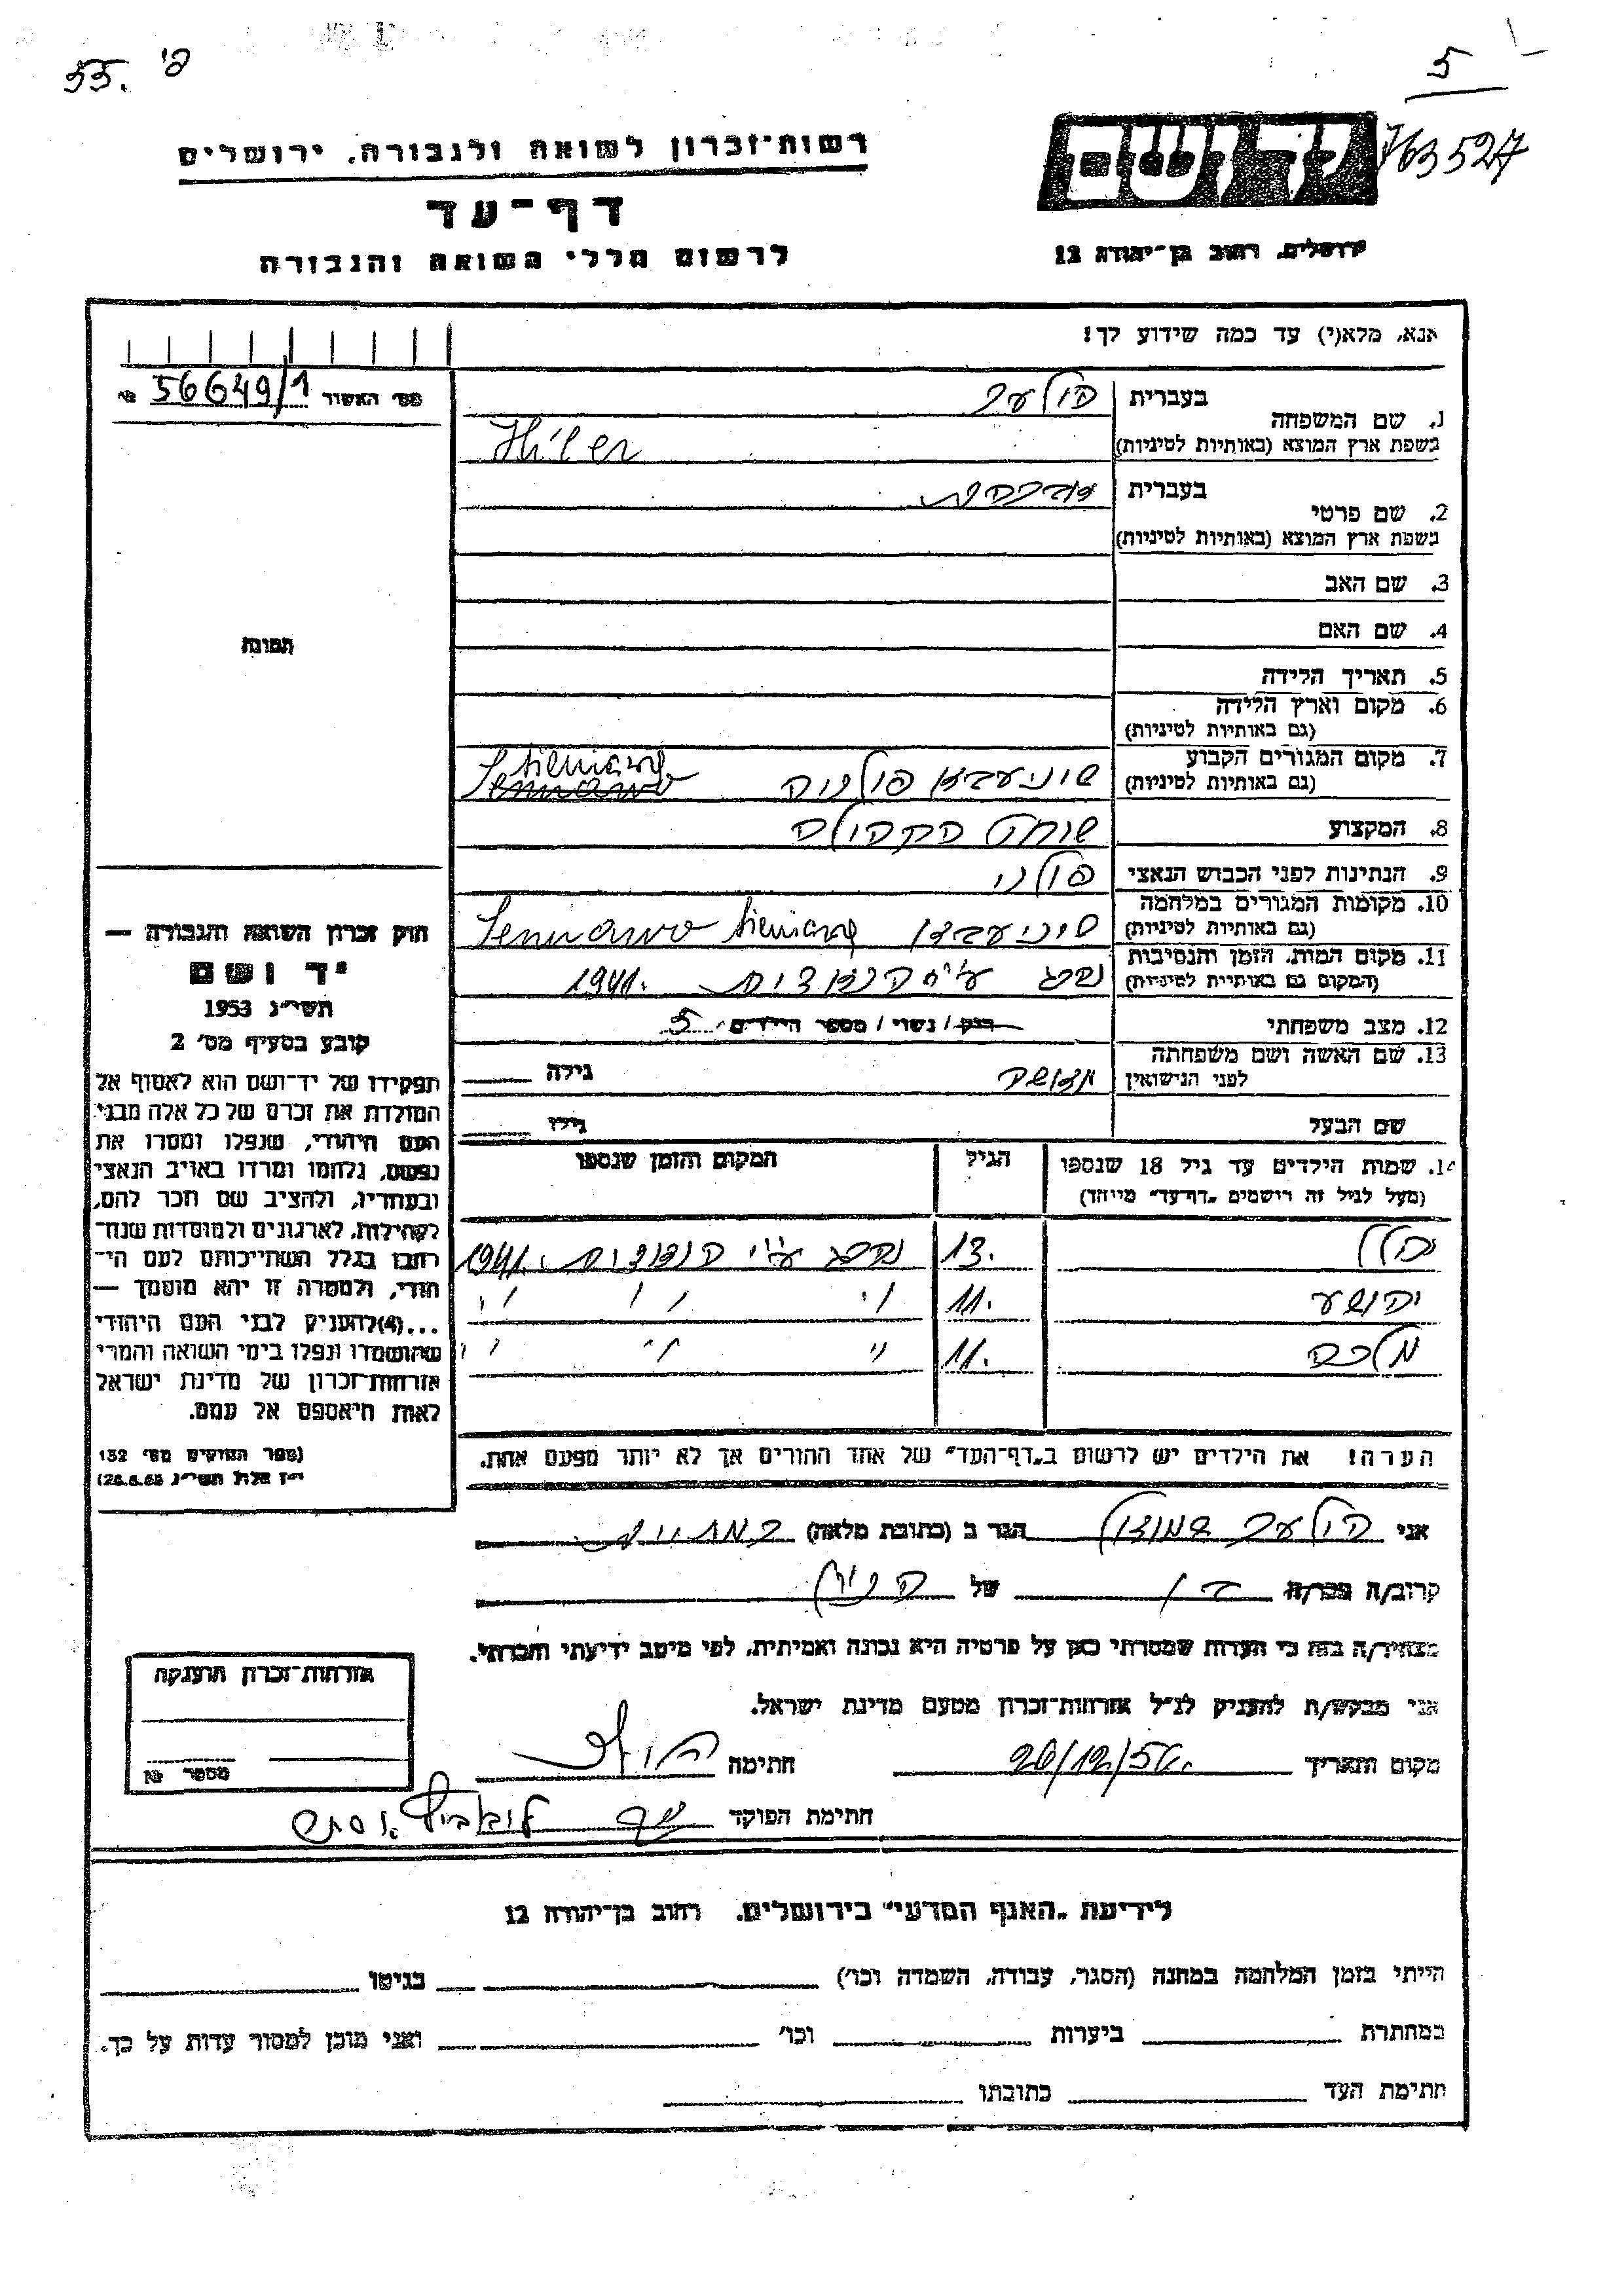 55. פ'
5
763527
רשות־זכרון לשואה ולגבורה, ירושלים
יד ושם
דף־עד
לרשום חללי השואה והגבורה
ירושלים, רחוב בן־יהודה 12
אנא, מלא(י) עד כמה שידוע לך!
מס' האשור № 56649/1
1. שם המשפחה בעברית הילער
בשפת ארץ המוצא (באותיות לטיניות) Hiler
2. שם פרטי בעברית
בשפת ארץ המוצא (באותיות לטיניות)
3. שם האב
4. שם האם
5. תאריך הלידה
6. מקום וארץ הלידה
(גם באותיות לטיניות)
7. מקום המגורים הקבוע
(גם באותיות לטיניות) פולניה Sieniawa
8. המקצוע שוחט הקהילה
9. הנתינות לפני הכבוש הנאצי פולני
10. מקומות המגורים במלחמה
(גם באותיות לטיניות) Sieniawa
11. מקום המות, הזמן והנסיבות
(המקום גם באותיות לטיניות) נהרג ע"י הנאצים 1941.
12. מצב משפחתי רווק / נשוי / מספר הילדים 5
13. שם האשה ושם משפחתה
לפני הנישואין גילה
שם הבעל גילו
14. שמות הילדים עד גיל 18 שנספו הגיל המקום והזמן שנספו
(מעל לגיל זה רושמים "דף־עד" מיוחד)
הלל 13. נהרג ע"י הנאצים 1941.
יהושע 11. " " "
מלכה 11. " " "
הערה! את הילדים יש לרשום ב"דף־העד" של אחד ההורים אך לא יותר מפעם אחת.
תמונה
חוק זכרון השואה והגבורה —
יד ושם
תשי"ג 1953
קובע בסעיף מס' 2
תפקידו של יד־ושם הוא לאסוף אל
המולדת את זכרם של כל אלה מבני
העם היהודי, שנפלו ומסרו את
נפשם, נלחמו ומרדו באויב הנאצי
ובעוזריו, ולהציב שם וזכר להם,
לקהילות, לארגונים ולמוסדות שנח־
רבו בגלל השתייכותם לעם הי־
הודי, ולמטרה זו יהא מוסמך —
...(4)להעניק לבני העם היהודי
שהושמדו ונפלו בימי השואה והמרי
אזרחות־זכרון של מדינת ישראל
לאות היאספם אל עמם.
(ספר החוקים מס' 132
י"ז אלול תשי"ג (28.8.53
אני הילער שמואל הגר ב (כתובת מלאה)
קרוב/ה מכר/ה בן של
מצהיר/ה בזה כי העדות שמסרתי כאן על פרטיה היא נכונה ואמיתית, לפי מיטב ידיעתי והכרתי.
אני מבקש/ת להעניק לנ"ל אזרחות־זכרון מטעם מדינת ישראל.
מקום ותאריך 26/12/56. חתימה
חתימת הפוקד
אזרחות־זכרון הוענקה
מספר №
לידיעת "האגף המדעי" בירושלים. רחוב בן־יהודה 12
הייתי בזמן המלחמה במחנה (הסגר, עבודה, השמדה וכו') בגיטו
במחתרת ביערות וכו' ואני מוכן למסור עדות על כך.
חתימת העד כתובתו